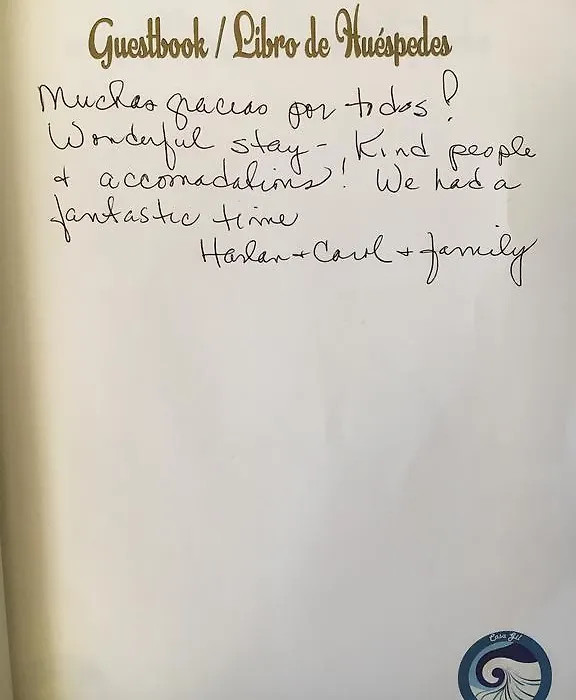 Guestbook / Libro de Huéspedes
Muchas gracias por todos!
Wonderful stay - Kind people
+ accomadations! We had a
fantastic time
Harlan + Carol + family
Casa Gil